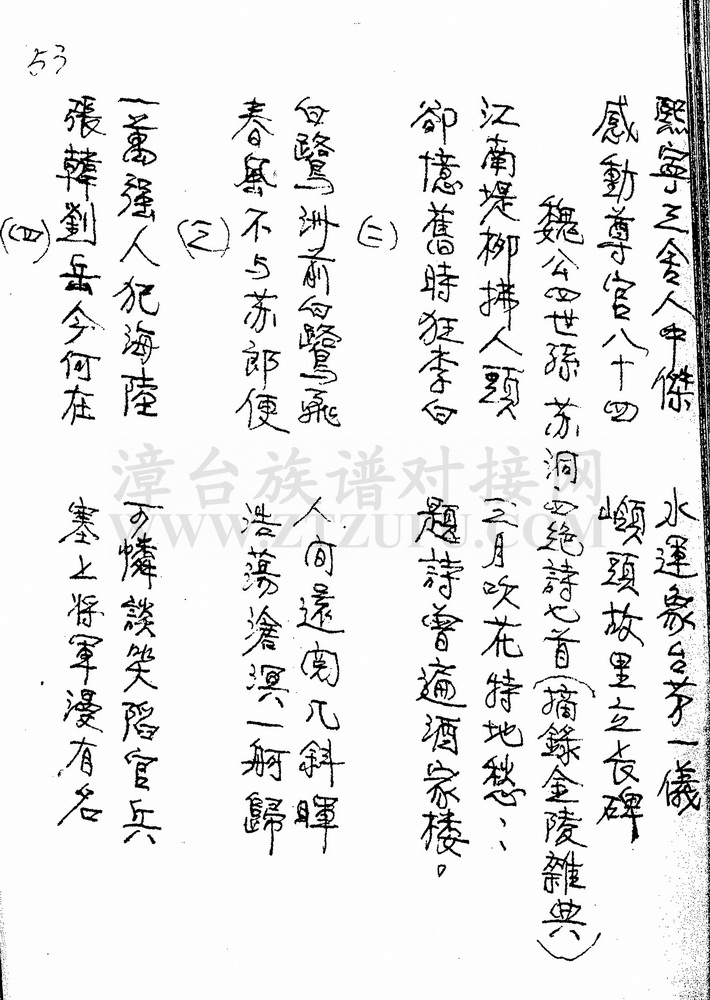 53
熙寧三舍人中傑 水運象台第一儀
感動尊官八十四 巔頭故里立長碑
魏公四世孫 苏泂 四絶詩七首(摘錄金陵雜典)
江南堤柳拂人頭 三月吹花特地愁:
卻憶舊時狂李白 題詩曾遍酒家楼。
(二)
白鷺洲前白鷺飛 人间還閱几斜暉
春風不与苏郎便 浩蕩滄溟一舸歸
(三)
一萬强人犯海陸 可憐談笑陷官兵
張韓劉岳今何在 塞上将軍漫有名
(四)
漳台族谱对接网
WWW.ZTZUPU.COM